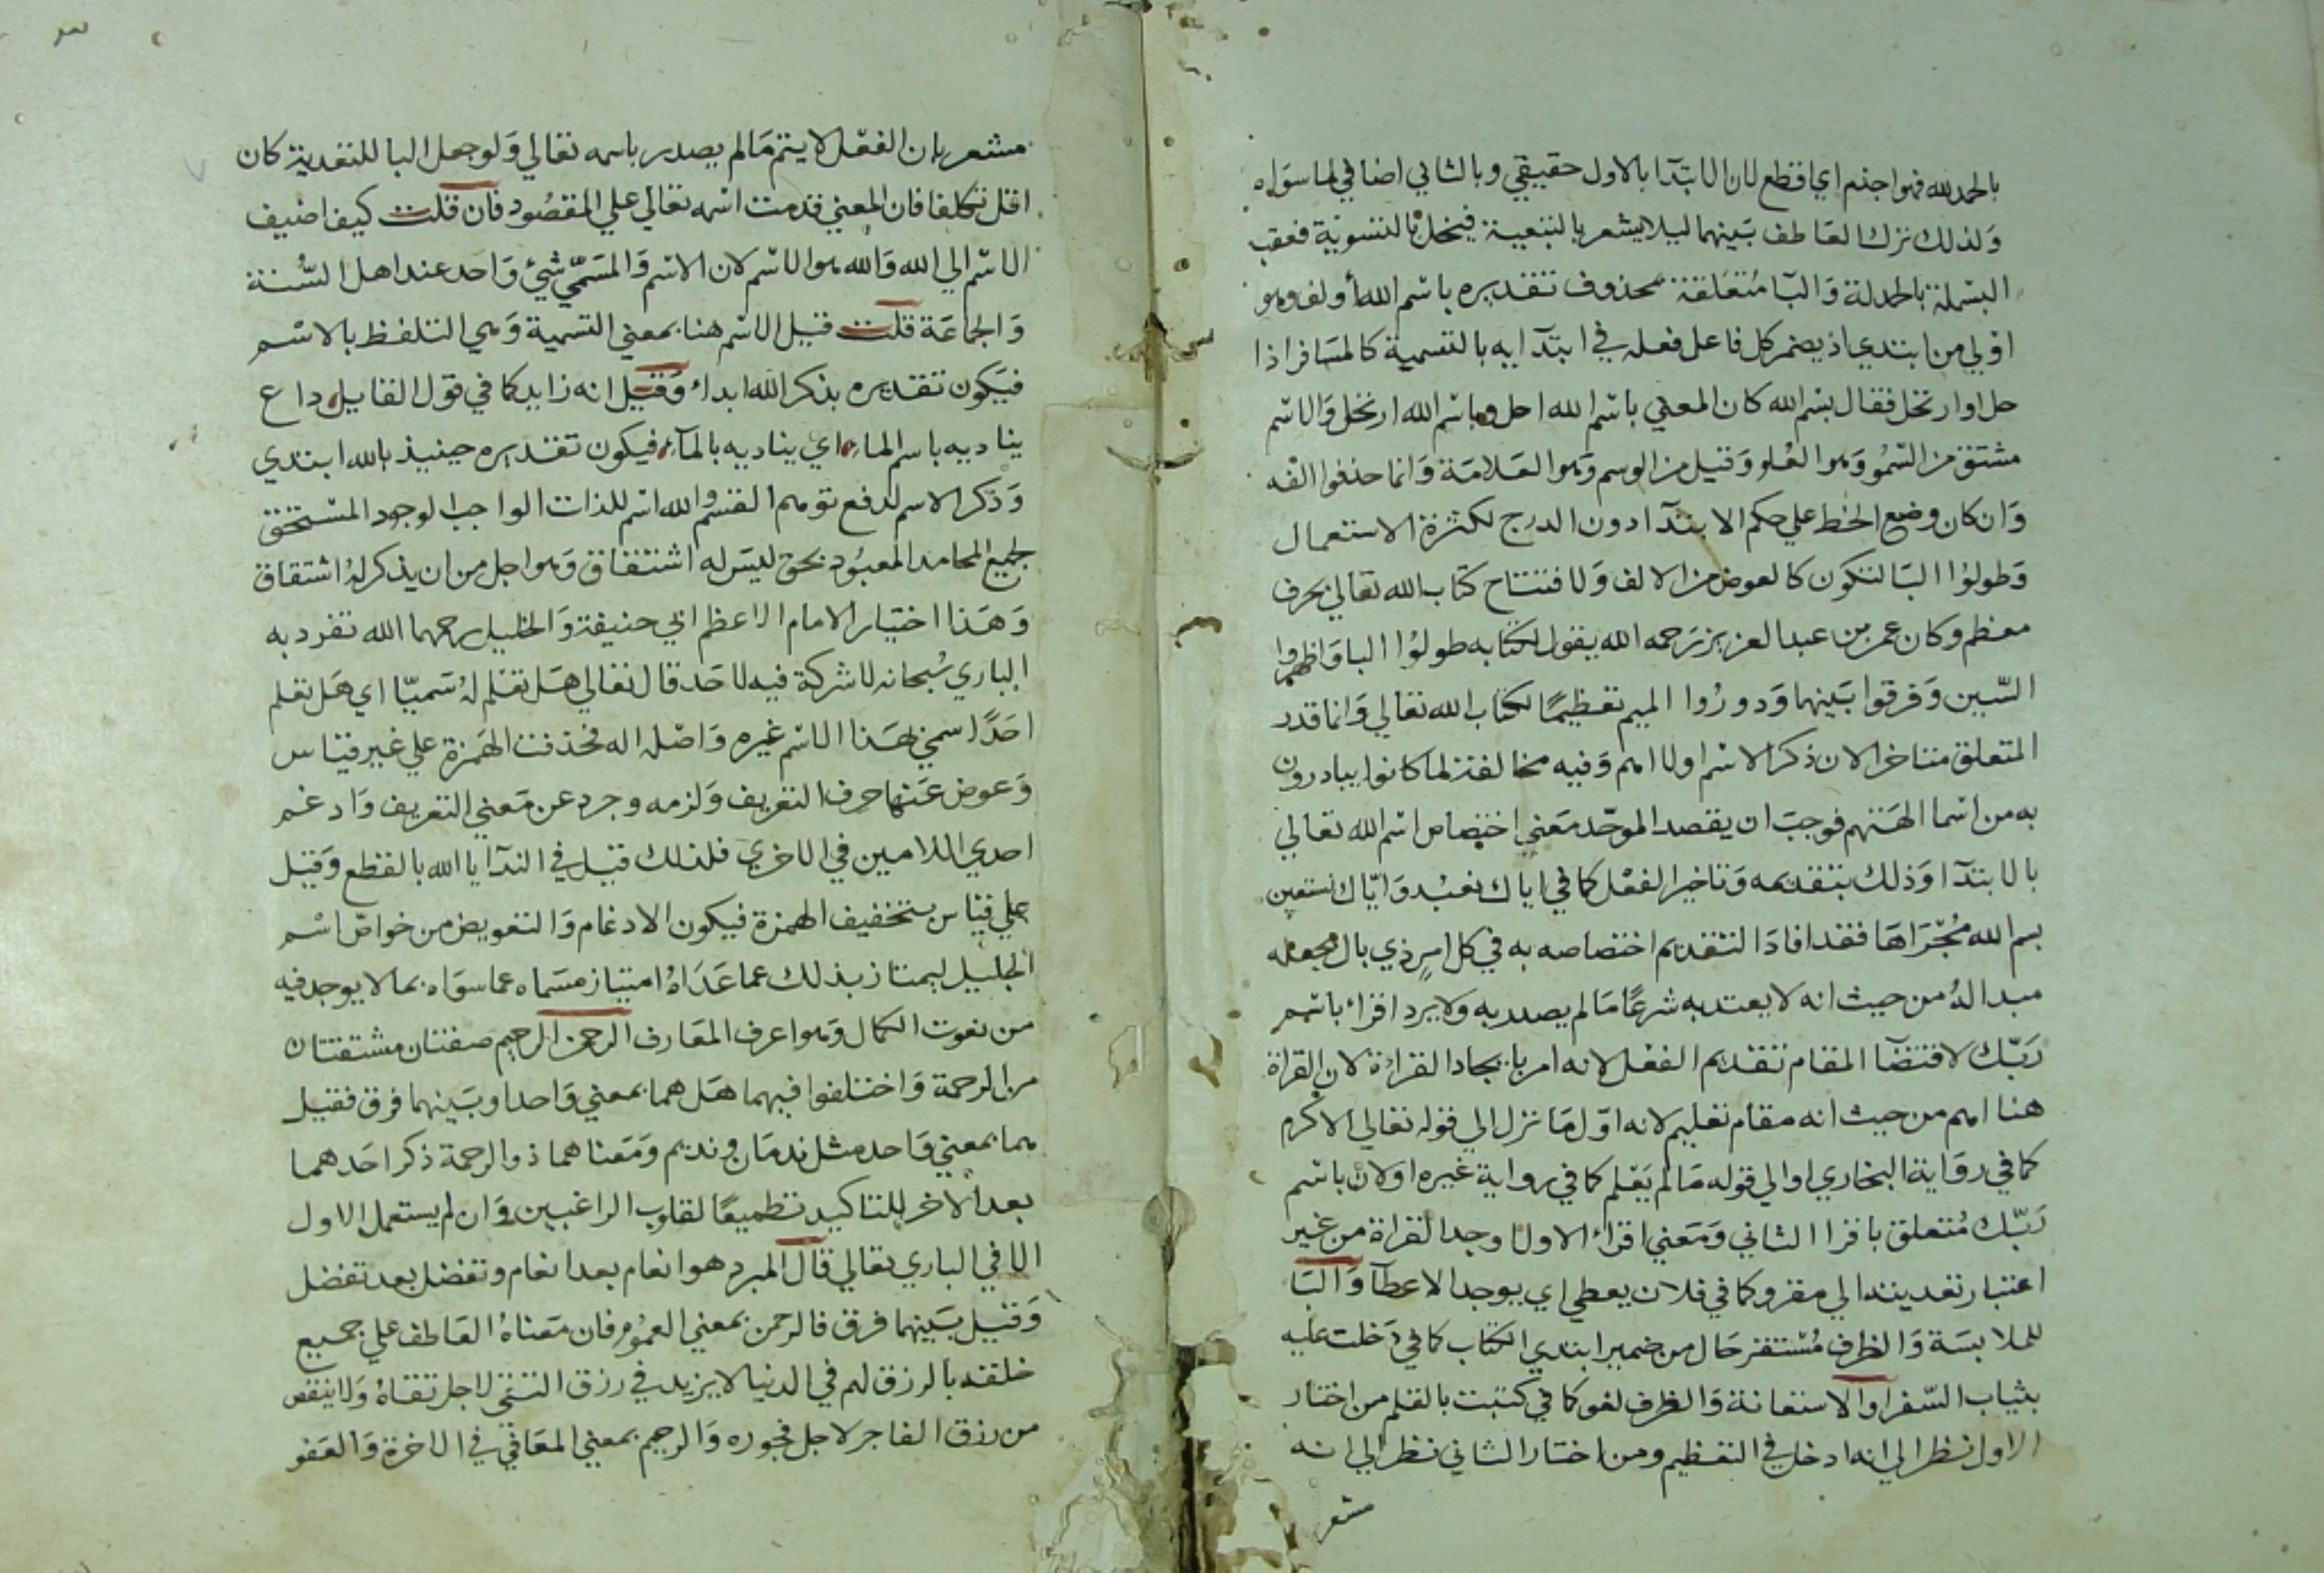 بالحمد لله فهو اجذم اي اقطع لان الابتدآ بالاول حقيقي وبالثاني اضافي لما سواه
وَلذلك ترك العَاطف بَينهما ليلا يشعر بالتبعية فيخل بالتسوية فعقب
البسْملة بالحمدلة وَالبآ مُتعَلقة بمحذوف تقديره باسْم الله أولف وهو
اوْلي من ابتدي اذ يضمر كل فاعل فعله في ابتدآيه بالتسمية كالمسَافر اذا
حل او ارتحل فقال بسْم الله كان المعني باسْم الله احل وباسْم الله ارتحل وَالاسْم
مشتق من السّمُو وَهو العُلو وَقيل من الوسم وَهو العَلامَة وَانما حذفوا الفه
وَان كان وضع الخط علي حكم الابتدآ دون الدرج لكثرة الاستعمال
وَطولوُا البَا لتكون كالعوض من الالف وَلافتتاح كتاب الله تعالي بحرف
معظم وكان عمر بن عبد العزيز رَحمه الله يقول لكتابه طولوُا البا وَاظهروا
السّين وَفرقوا بَينهما وَدورُوا الميم تعظيمًا لكتاب الله تعالي وَانما قدر
المتعلق متاخرا لان ذكر الاسْم اولا اهم وَفيه مخالفة لما كانوا يبادرون
به من اسْما الهَتهم فوجبَ ان يقصد الموحّد مَعني اختصَاص اسْم الله تعالي
بالابتدآ وَذلك بتقديمه وَتاخير الفعْل كما في اياك نعبُد وَايّاك نستعين
بسم الله مُجْرَاهَا فقد افادَ التقديم اختصاصه به في كل امرٍ ذي بال فجعله
مبدا لهُ من حيث انه لا يعتد به شرعًا مَا لم يصدر به ولا يرد اقراء باسْم
رَبّك لاقتضَآ المقام تقديم الفعْل لانه امر بايجاد القراءة لان القراة
هنا اهم من حيث انه مقام تعليم لانه اوّل مَا نزل الي قوله تعالي الاكرم
كما في روَاية البخاري او الي قوله مَا لم يَعْلم كما في رواية غيره او لان باسْم
رَبّك مُتعلق باقرا الثاني وَمَعني اقراء الاول اوجد القراة من غير
اعتبار تعديته الي مقرو كما في فلان يعطي اي يوجد الاعطآ وَالبَا
للملابسَة وَالظرف مُسْتقر حَال من ضمير ابتدي الكتاب كما في دَخلت عليه
بثياب السّفر او الاستعانة وَالظرف لغو كما في كتبت بالقلم من اختار
الاول نظر الي انه ادخل في التعظيم ومن اختار الثاني نظر الي انه
مشعر
مشعر بان الفعْل لا يتم مَا لم يصدر باسمه تعالي وَلو جعل البا للتعدية كان
اقل تكلفا فان المعني قدمت اسْمه تعالي علي المقصُود فان قلت كيف اضيف
الاسْم الي الله وَالله هو الاسْم لان الاسْم وَالمسَمّي شئ وَاحد عند اهل السُّنة
وَالجماعَة قلت قيل الاسْم هنا بمعني التسمية وَهي التلفظ بالاسْم
فيَكون تقديره بذكر الله ابداء وَقيل انه زايد كما في قول القايل، داع
يناديه باسم الماء، اي يناديه بالمآء، فيكون تقديره حينيذ بالله ابتدي
وَذكر الاسم لدفع توهم القسم والله اسْم للذات الواجب الوجود المسْتحق
لجميع المحامد المعبُود بحق ليسَ له اشتقاق وَهو اجل من ان يذكر لهُ اشتقاق
وَهَذا اختيار الامام الاعظم ابي حنيفة وَالخليل رحمهما الله تفرد به
الباري سُبحانه لا شركة فيه لاحَد قال تعالي هَل تعْلم لهُ سَميّا اي هَل تعلم
احَدًا سمي بهَذا الاسْم غيره وَاصْله اله فحذفت الهَمزة علي غير قياس
وَعوض عَنها حرف التعريف وَلزمه وجرد عن مَعني التعريف وَادغم
احدي اللامين في الاخري فلذلك قيل في الندآ يا الله بالقطع وَقيل
علي قيَاس بتخفيف الهمزة فيكون الادغام وَالتعويض من خواصّ اسْم
الجليل ليمتاز بذلك عما عَدَاهُ امتياز مسَماه عما سوَاه بما لا يوجد فيه
من نعوت الكمال وَهو اعرف المعَارف الرحمن الرحيم صفتان مشتقتان
من الرحمة وَاختلفوا فيهما هَل هما بمعني وَاحد او بَينهما فرق فقيل
هما بمعني وَاحد مثل ندمَان ونديم وَمَعناهما ذو الرحمة ذكر احَدهما
بعد الاخر للتاكيد تطميعًا لقلوب الراغبين وَان لم يستعمل الاول
الا في الباري تعالي قال المبرد هو انعام بعد انعام وتفضل بعد تفضل
وَقيل بَينهما فرق فالرحمن بمعني العمُوم فان مَعناهُ العَاطف علي جميع
خلقه بالرزق لهم في الدنيا لا يزيد في رزق التقي لاجل تقاهُ وَلا ينقص
من رزق الفاجر لاجل فجوره وَالرحيم بمعني المعَافي في الاخرة وَالعَفو